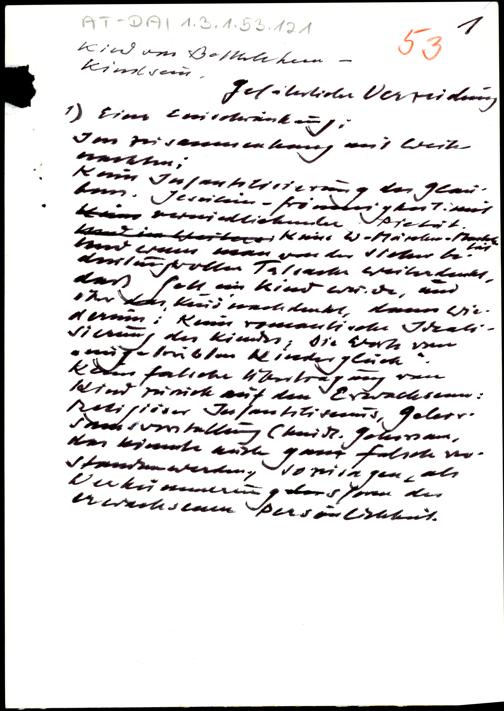 AT-DAI 1.3.1.53.121
1
53
Kind von Bethlehem –
Kindsein.
Gefährliche Verneidung
1) Eine Einschränkung:
Im Zusammenhang mit Weih-
nachten:
Keine Infantilisierung des Glau-
bens. Jesulein-frömmigkeit mit
verniedlichender Pietät.
Keine W-Märchen-
Und wenn man von der sicher be-
deutungsvollen Tatsache weiterdenkt,
daß Gott ein Kind wurde, und
über das Kind nachdenkt, dann wie-
derum: Keine romantische Ideali-
sierung des Kindes; die Worte vom
„ungetrübten Kinderglück".
Keine falsche Übertragung vom
Kind zurück auf den Erwachsenen:
Religiöser Infantilismus, Gehor-
samsvorstellung (kindl. Gehorsam,
das könnte auch ganz falsch ver-
standen werden, sozusagen als
Verkümmerungsform der
erwachsenen Persönlichkeit.